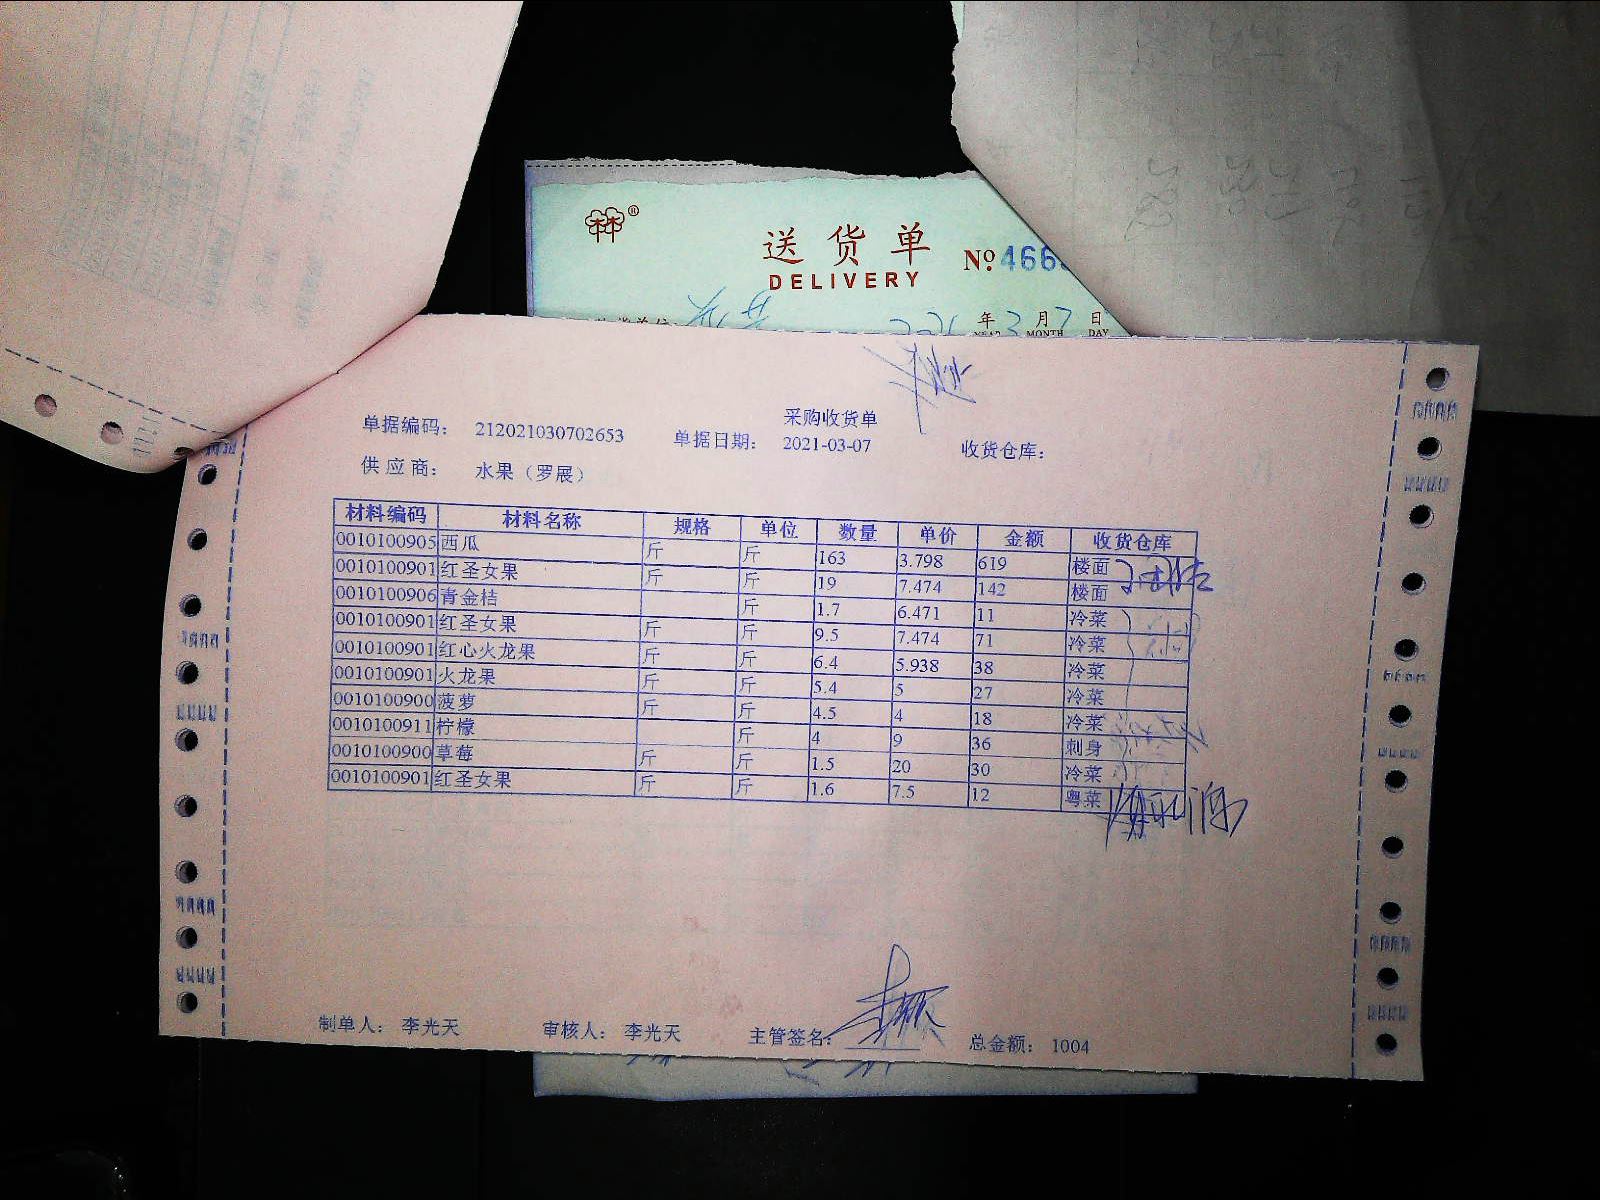 送货单
DELIVERY
№ 466
年 3 月 7 日
MONTH DAY
采购收货单
单据编码： 212021030702653 单据日期： 2021-03-07 收货仓库：
供应商： 水果（罗展）
材料编码 材料名称 规格 单位 数量 单价 金额 收货仓库
0010100905 西瓜 斤 斤 163 3.798 619 楼面
0010100901 红圣女果 斤 斤 19 7.474 142 楼面
0010100906 青金桔 斤 1.7 6.471 11 冷菜
0010100901 红圣女果 斤 斤 9.5 7.474 71 冷菜
0010100901 红心火龙果 斤 斤 6.4 5.938 38 冷菜
0010100901 火龙果 斤 斤 5.4 5 27 冷菜
0010100900 菠萝 斤 斤 4.5 4 18 冷菜
0010100911 柠檬 斤 4 9 36 刺身
0010100900 草莓 斤 斤 1.5 20 30 冷菜
0010100901 红圣女果 斤 斤 1.6 7.5 12 粤菜
制单人： 李光天 审核人： 李光天 主管签名： 总金额： 1004